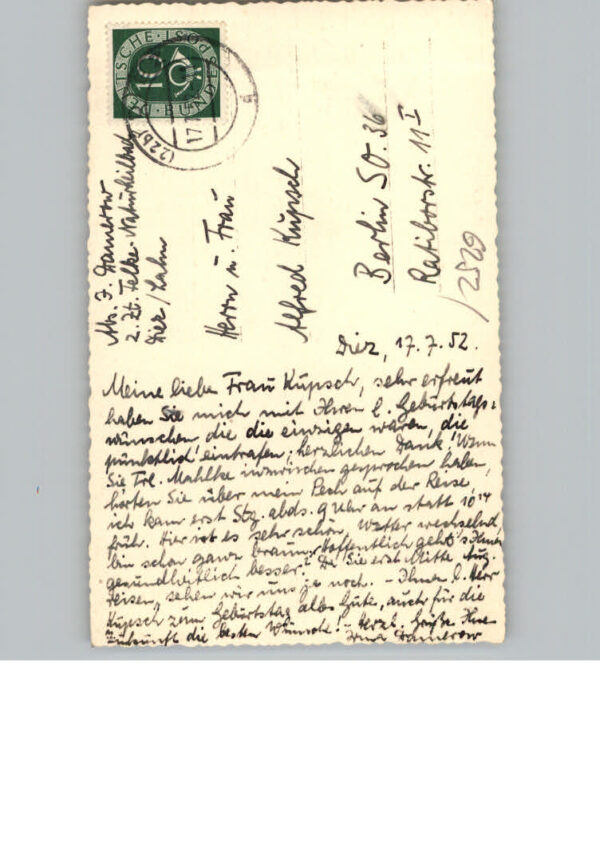 DEUTSCHE BUNDESPOST
10
(22b)
17.7.
Abs. I. Damerow
z. Zt. Felke-Naturheilbad
Diez/Lahn
Herrn u. Frau
Alfred Kupsch
Berlin SO. 36
Ratiborstr. 11 I
/2529
Diez, 17.7.52.
Meine liebe Frau Kupsch, sehr erfreut
haben Sie mich mit Ihren l. Geburtstags-
wünschen die die einzigen waren, die
pünktlich eintrafen; herzlichen Dank! Wenn
Sie Frl. Mahlke inzwischen gesprochen haben,
hörten Sie über mein Pech auf der Reise,
ich kam erst Stg. abds. 9 Uhr an statt 10¹⁴
früh. Hier ist es sehr schön, Wetter wechselnd,
bin schon ganz braun. Hoffentlich geht's Ihnen
gesundheitlich besser? Da Sie erst Mitte Aug.
reisen, sehen wir uns ja noch. - Ihrem l. Herr
Kupsch zum Geburtstag alles Gute, auch für die
Zukunft die besten Wünsche! - Herzl. Grüße Ihre
Irma Damerow